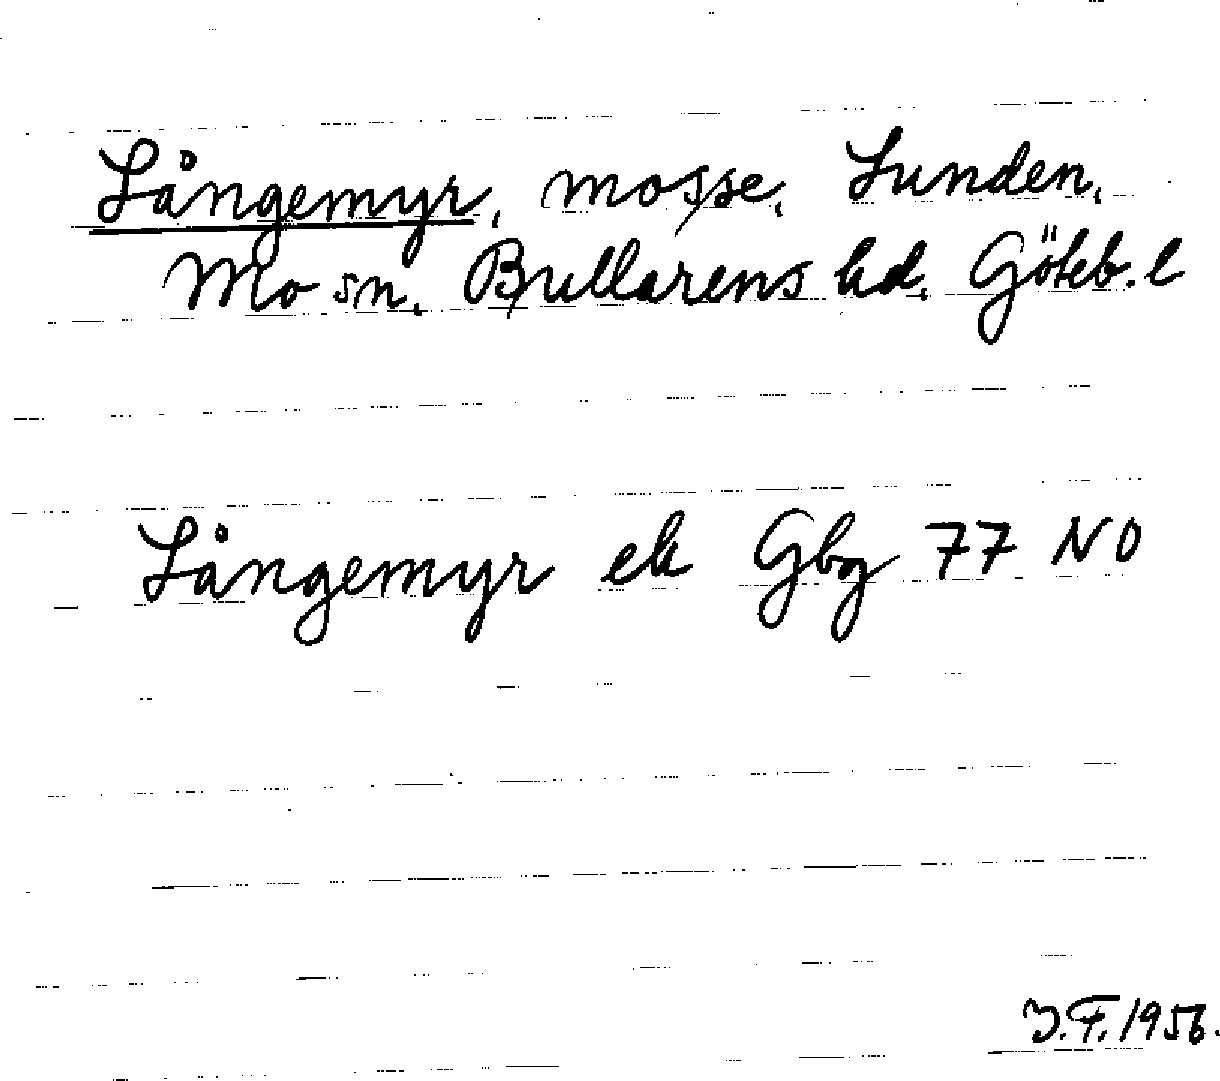 Långemyr, mosse, Lunden,
Mo sn, Bullarens hd, Göteb. l
Långemyr ek Gbg 77 NO
J.F. 1956.